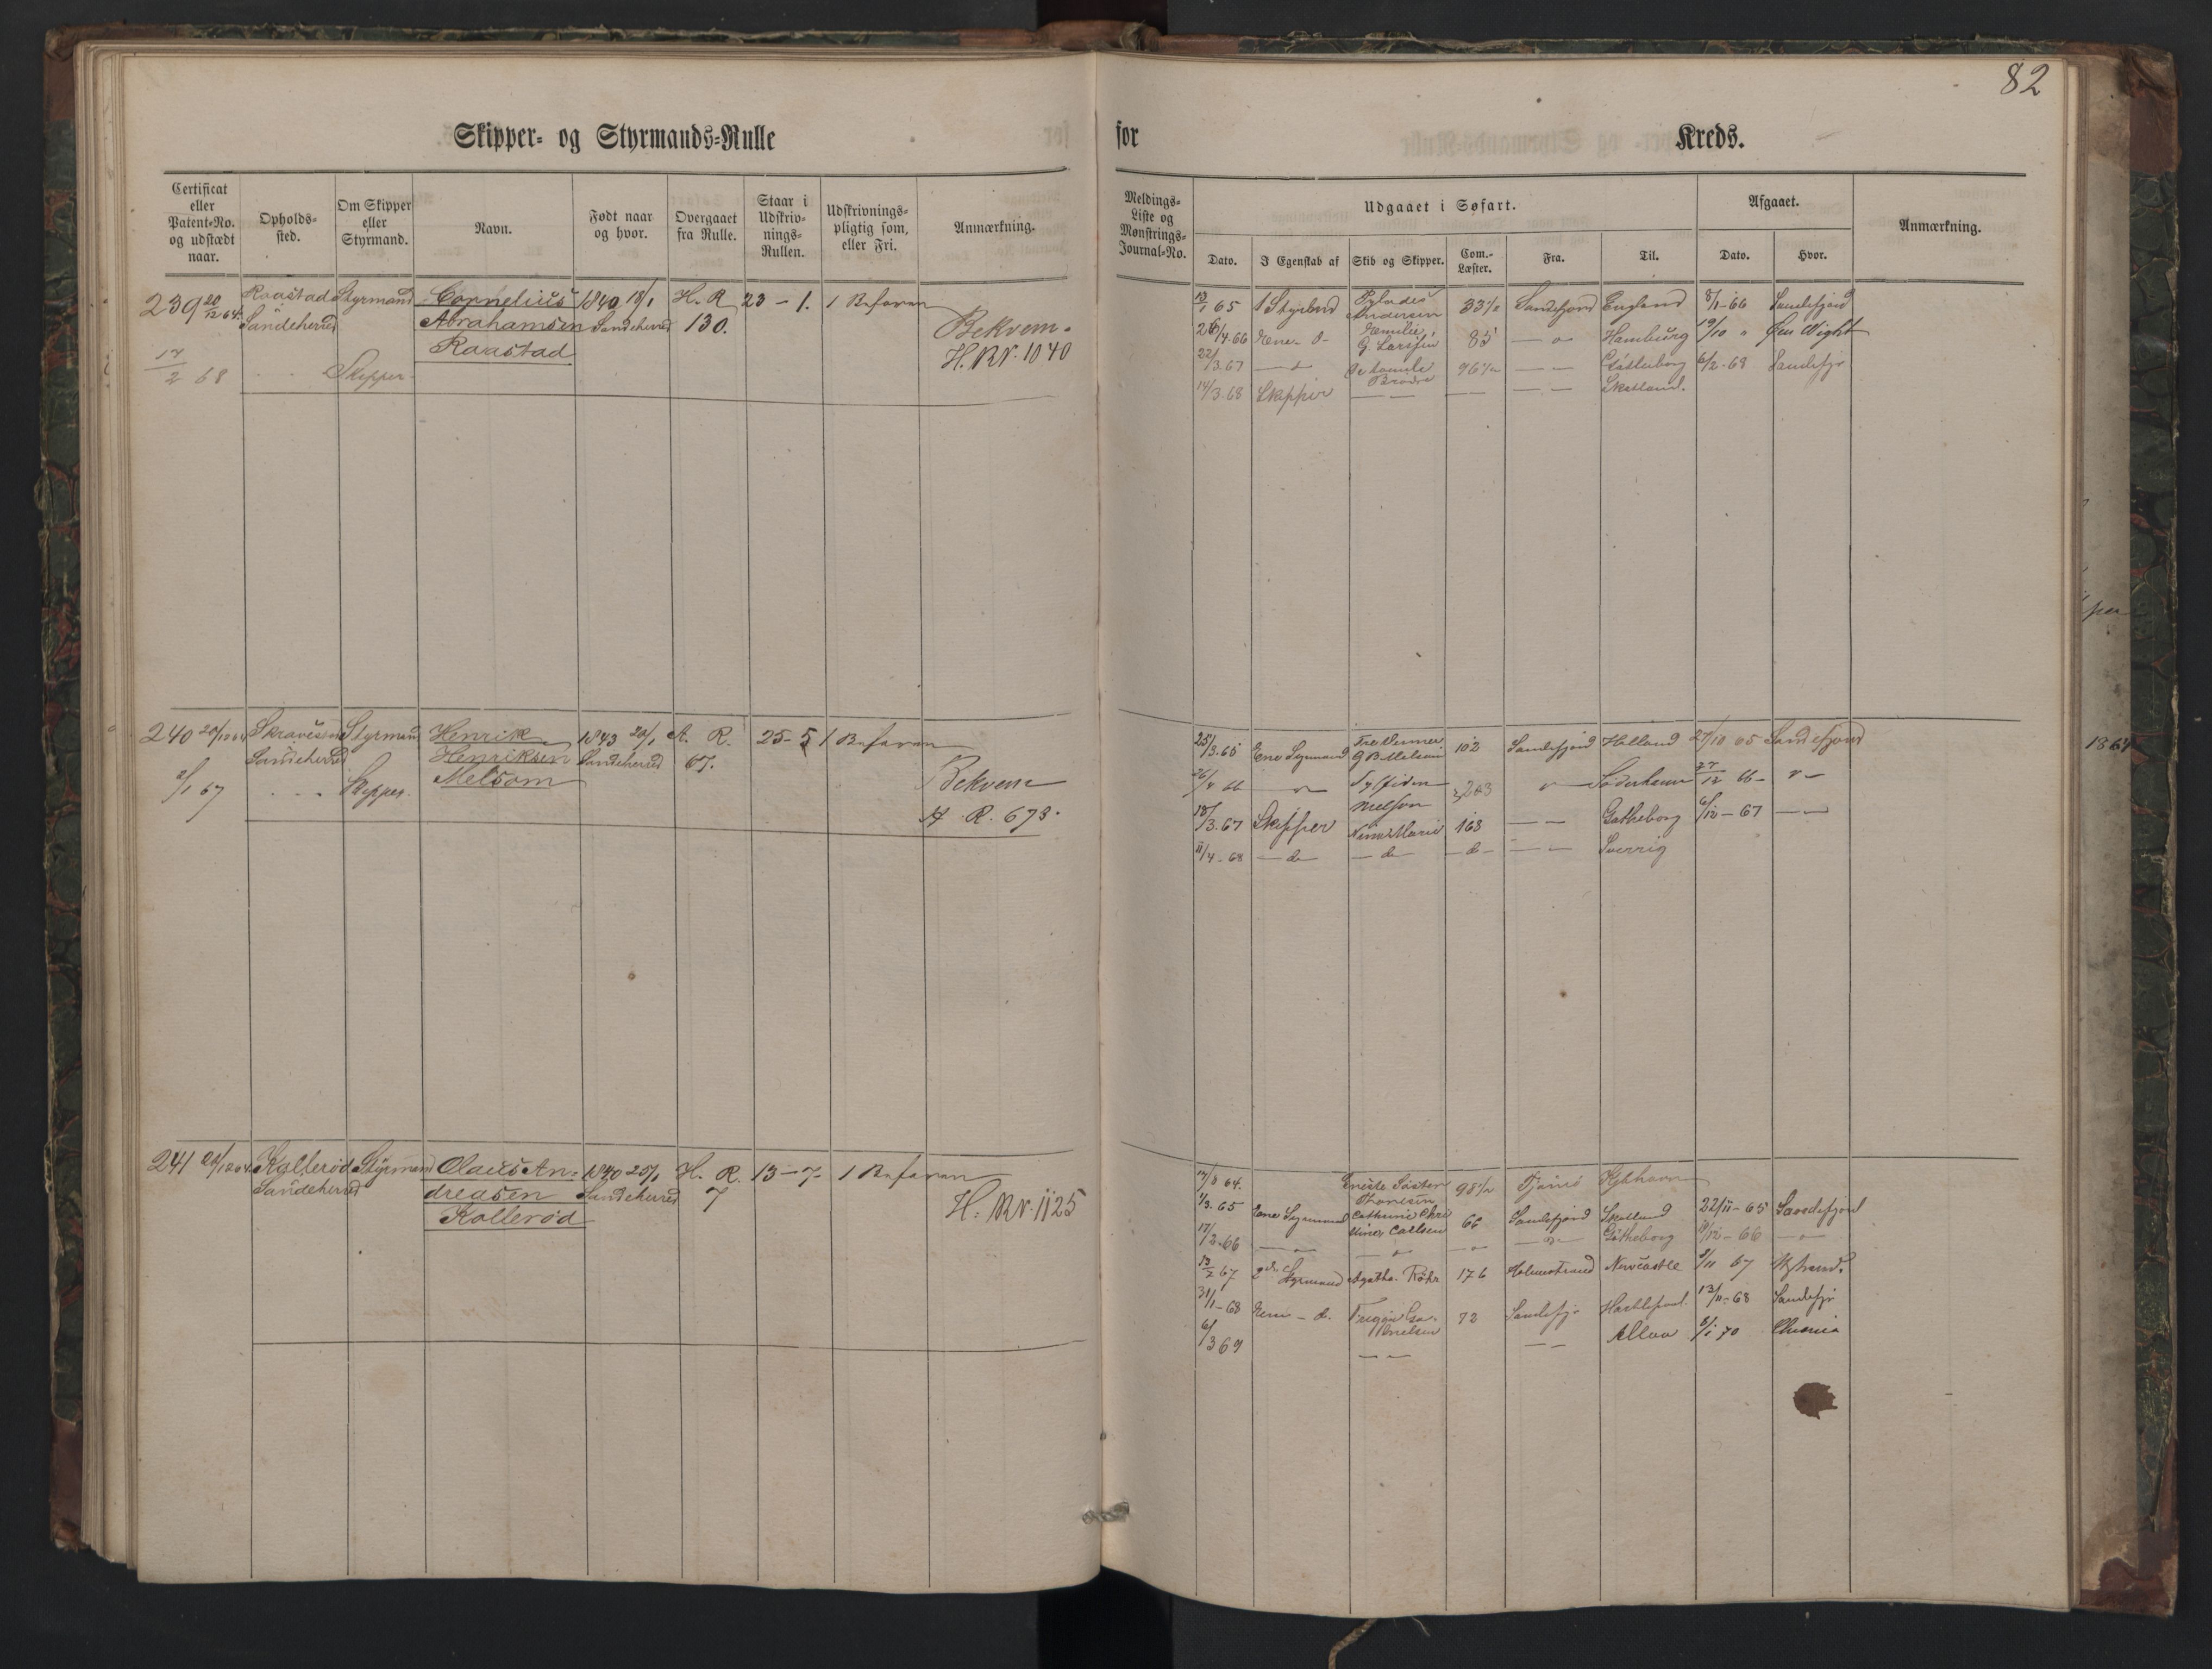 82
Skipper- og Styrmands-Rulle
for Kreds.
Certificat eller Patent-No. og udstædt naar.
Opholds-sted.
Om Skipper eller Styrmand.
Navn.
Født naar og hvor.
Overgaaet fra Rulle.
Staar i Udskriv-nings-Rullen.
Udskrivnings-pligtig som, eller Fri.
Anmærkning.
Meldings-Liste og Mønstrings-Journal-No.
Udgaaet i Søfart.
Dato.
I Egenskab af
Skib og Skipper.
Com.-Læster.
Fra.
Til.
Afgaaet.
Dato.
Hvor.
Anmærkning.
239 20/12 64 Raastad Styrmand Cornelius 1840 18/1 H. R 23 - 1. 1 Befaren
Sandeherred Abrahamsen Sandeherred 130. Bekvem.
Raastad H. RN. 1040
17/2 68 " " Skipper
13/1 65 1 Styrmd Pylades Andersen 33 1/2 Sandefjord England 8/1-66 Sandefjord
26/4.66 Ene- d- Emilie, G. Larssen 85 — Hamburg 19/10 " Øen Wight
22/3.67 — d De tvende Brødre 96 1/2 — — Gøtheborg 6/2-68 Sandefjr
14/3.68 Skipper — — — — — Skotland.
240 20/12 64 Styrmand Henrik 1843 20/1 A. R. 25-5 1 Befaren
Sandeherred Henriksen Sandeherred 67.
Melsom Bekvem
2/1 67 " " Skipper. A. R. 673.
25/3.65 Ene Styrmand Tre Venner G B Melsom 102 Sandefjord Holland 27/10 65 Sandefjord
26/4 66 — Sylfiden Melsom 203 Söderhamn 27/12 66 —
18/3.67 Skipper 168 — — Gøtheborg 6/12-67 — —
11/4-68 — do — do — do — — — Sverrig
241 20/12 64 Kallerød Styrmand Olaus An- 1840 25/1 H. R. 13-7- 1 Befaren
Sandeherred dreasen Sandeherred 7
Kallerød H. RN. 1125
64. Eneste Søster 98 1/2 Tjømø Kjbhavn
1/3.65 Ene Styrmand Cathrine Christine, Carlsen 66 Sandefjord Skotland 22/11-65 Sandefjord
17/2.66 — — — — Gøtheborg 9/12-66 —
13/2 67 2den Styrmand Agatha. Röhr 176 Holmestrand Newcastle 2/11 67
31/1-68 Ene - d. 72 Sandefjr Hartlepool 13/11-68 Sandefjr
6/3 69 — — — — Alloa 5/1 70
1864